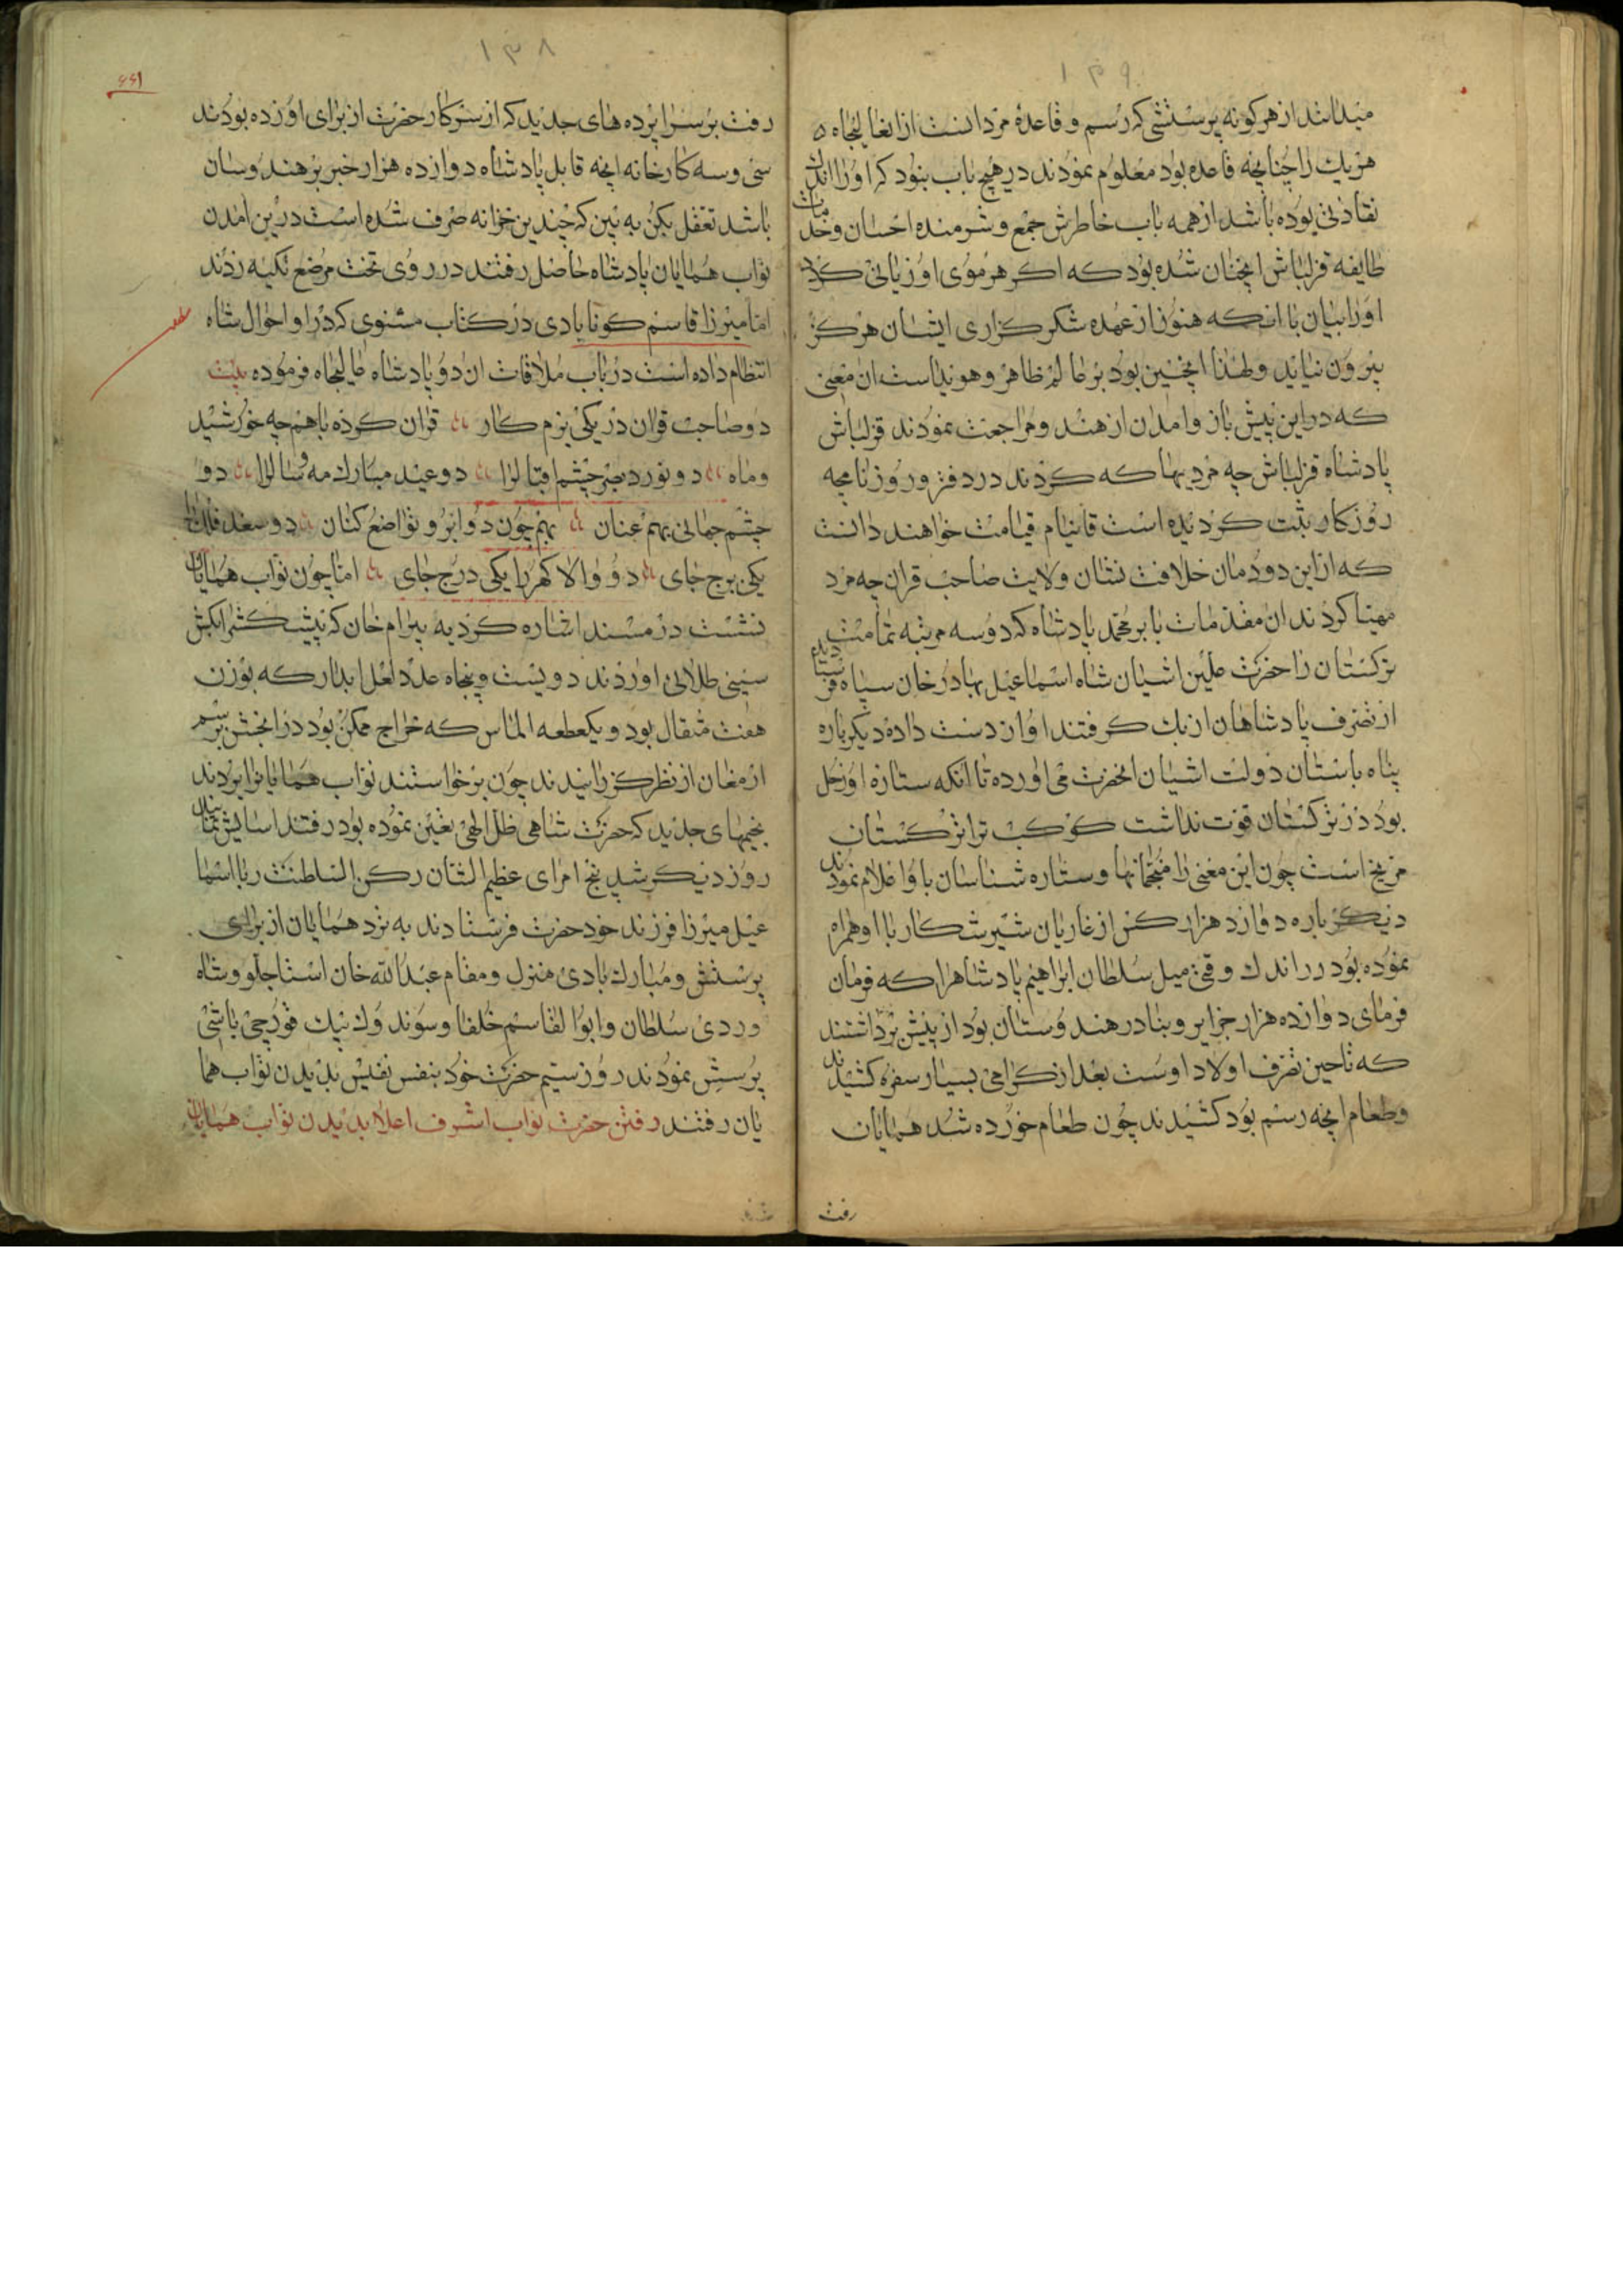 ۱۳۹
میدانند از هر کونه پرسشی که رسم و قاعدهٔ مردانست از انعالیجاه
هریك را چنانچه قاعده بود معلوم نمودند در هیچ باب نبود که او را اندك
نقادنی بوده باشد از همه باب خاطرش جمع و شرمنده احسان و خدمات
طایفه قزلباش انچنان شده بود که اکر هر موی او زبانی کردد
او را بیان با انکه هنوز از عهده شکر کزاری ایشان هرکز
بیرون نیاید و لهذا انچنین بود بر عالم ظاهر و هویداست ان معنی
که در این پیش باز و امدن از هند و مراجعت نمودند قزلباش
پادشاه قزلباش چه مردیها که کردند در دفتر و روزنامچه
روزکار ثبت کردیده است تا قیام قیامت خواهند دانست
که از این دودمان خلافت نشان ولایت صاحب قران چه مرد
مهیتا کردند ان مقدمات بابر محمد پادشاه که دو سه مرتبه تمامت
ترکستان را حضرت علیین اشیان شاه اسماعیل بهادر خان سپاه فرستاده
از تصرف پادشاهان ازبك کرفتند او از دست داده دیکر باره
پناه باستان دولت اشیان انحضرت می اورده تا انکه ستاره او زحل
بود در ترکستان قوت نداشت کوکب ترا ترکستان
مریخ است چون این معنی را منجمانها و ستاره شناسان باو اعلام نمودند
دیکر باره دوازد هزار کس از غازیان شیر شکار با او همراه
نموده بود در اندك وقتی میل سلطان ابراهیم پادشاهرا که فرمان
فرمای دوازده هزار جزایر و بنادر هندوستان بود از پیش برداشتند
که تا حین تصرف اولاد اوست بعد از کرامی بسیار سفره کشیدند
و طعام انچه رسم بود کشیدند چون طعام خورده شد همایان
رفت
۱۳۸
۶۶۱
رفت بر سرا پرده های جدید که از سرکار حضرت از برای او زده بودند
سی و سه کارخانه انچه قابل پادشاه دوازده هزار خبر بر هندوسان
باشد تعقل بکن به بین که چندین خزانه صرف شده است در ین امدن
نواب همایان پادشاه حاضل رفتند در روی تخت مرصع تکیه زدند
اما میرزا قاسم کونابادی در کتاب مثنوی که در او احوال شاه
انتظام داده است در باب ملاقات ان دو پادشاه عالیجاه فرموده بیت
دو صاحب قران در یکی بزم کار قران کرده باهم چه خورشید
و ماه دو نور دبصر چشم اقبالرا دو عید مبارك مه و سالرا دو
چشم جهانی بهم عنان بهم چون دو ابرو تواضع کنان دو سعد فلك را
یکی برج جای دو والا کهر را یکی درج جای اما چون نواب همایان
نشست در مسند اشاره کرد به بیرام خان که پیشکش را بکش
سینی طلائی اوردند دویست و پنجاه عدد لعل ابدار که بوزن
هفت مثقال بود و یکعطعه الماس که خراج ممکن بود در انجشن برسم
ارمغان از نظر کزرانیدند چون برخواستند نواب همایانرا بردند
بخیمهای جدید که حضرت شاهی ظل الهی تعین نموده بود رفتند اسایش نمایند
روز دیکر شد پنج امرای عظیم الشان رکن السلطنت را با اسما
عیل میرزا فرزند خود حضرت فرستادند به نزد همایان از برای
پرسش و مبارك بادی منزل و مقام عبدالله خان استاجلو و شاه
وردی سلطان و ابوالقاسم خلفا و سوندوك بیك قورچی باشی
پرسش نمودند روز سیم حضرت خود بنفس نفیس بدیدن نواب هما
یان رفتند رفتن حضرت نواب اشرف اعلا بدیدن نواب همایان